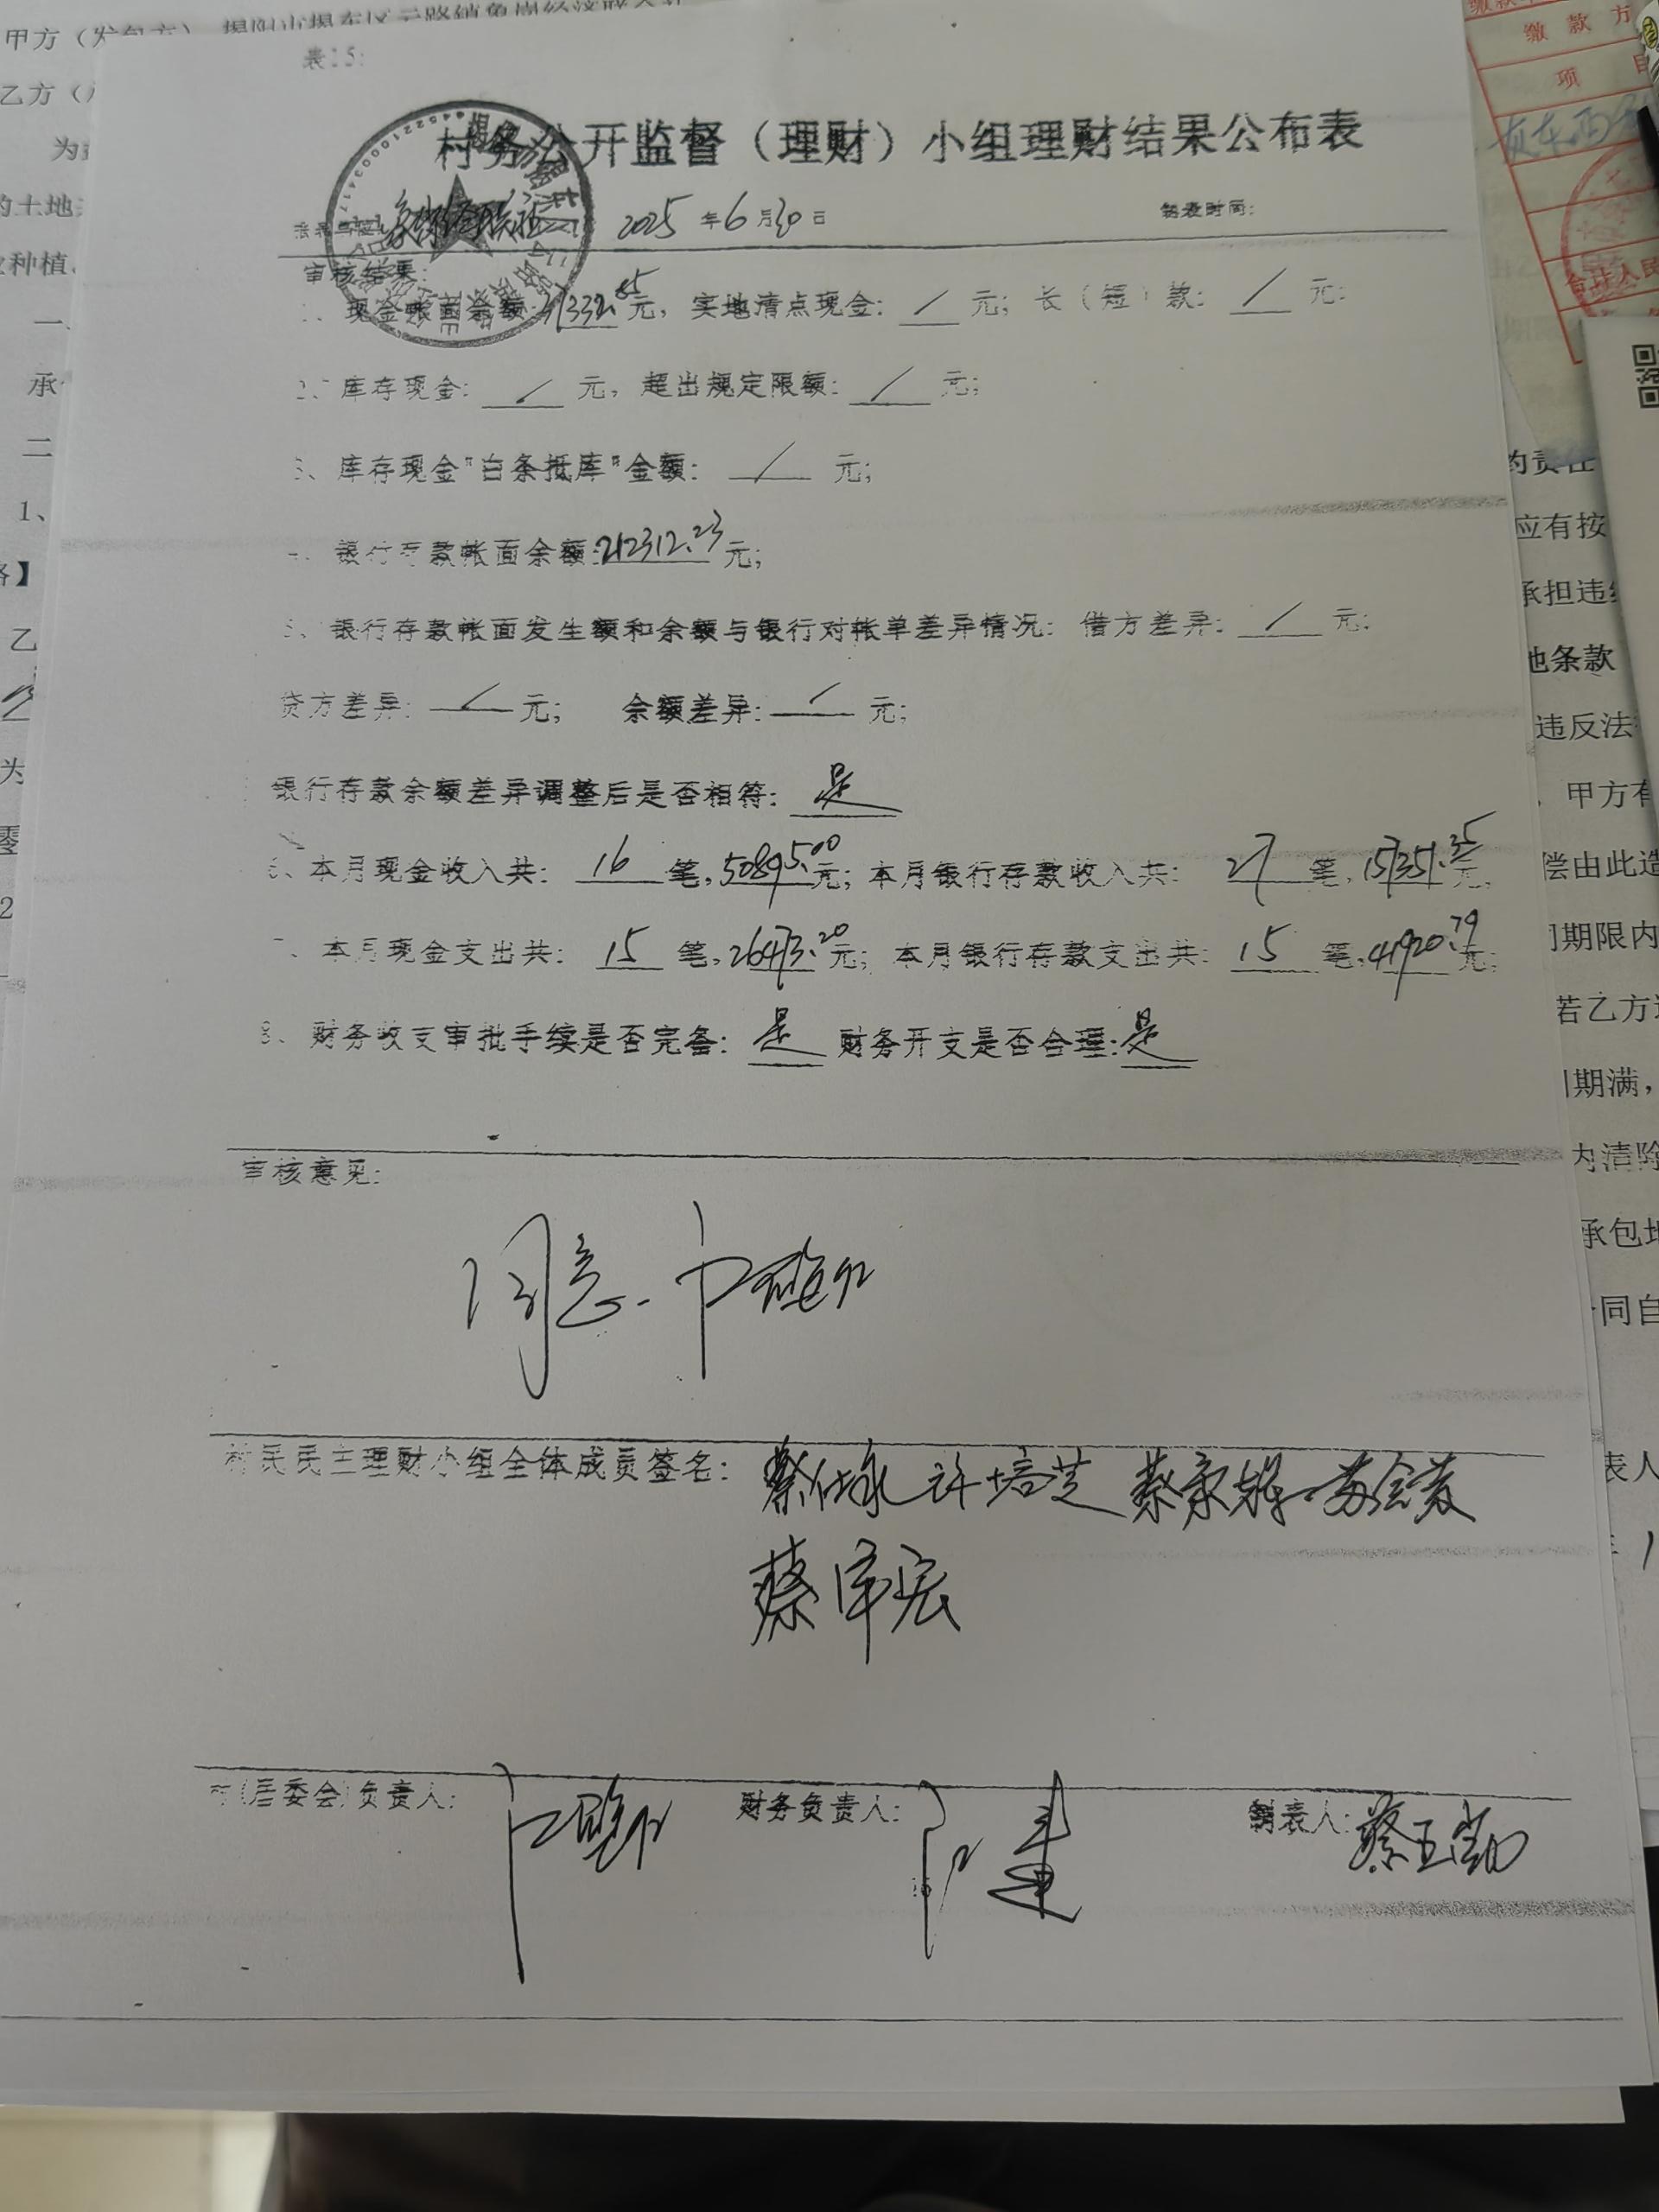 甲方（发包方）
缴款方
乙方（
项目
表15：
村务公开监督（理财）小组理财结果公布表
2025年6月30日 制表时间：
审核结果：
现金帐面余额： 元，实地清点现金：／元；长（短）款：／元；
2、库存现金：／元，超出规定限额：／元；
3、库存现金"白条抵库"金额：／元；
银行存款帐面余额：212312.23元；
5、银行存款帐面发生额和余额与银行对帐单差异情况：借方差异：／元；
贷方差异：／元； 余额差异：／元；
银行存款余额差异调整后是否相符：是
6、本月现金收入共：16笔，50895.00元；本月银行存款收入共：27笔，15351.35元，
、本月现金支出共：15笔，26473.20元；本月银行存款支出共：15笔，41920.79元；
8、财务收支审批手续是否完备：是 财务开支是否合理：是
审核意见：
同意.
村民民主理财小组全体成员签名： 许培芝
村（居委会）负责人： 财务负责人： 制表人：
的土地
种植、
一、
承
二
1、
乙
为
2
的责任
应有按
承担违
地条款
违反法
，甲方有
偿由此造
期限内
若乙方
期满，
内清除
承包地
同自
表人